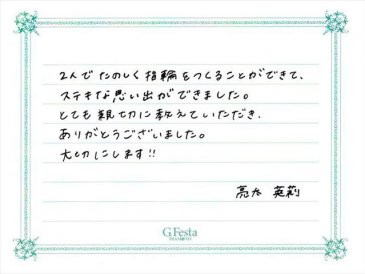 2人でたのしく指輪をつくることができて、
ステキな思い出ができました。
とても親切に教えていただき、
ありがとうございました。
大切にします!!
亮太 英莉
G.Festa
DIAMOND